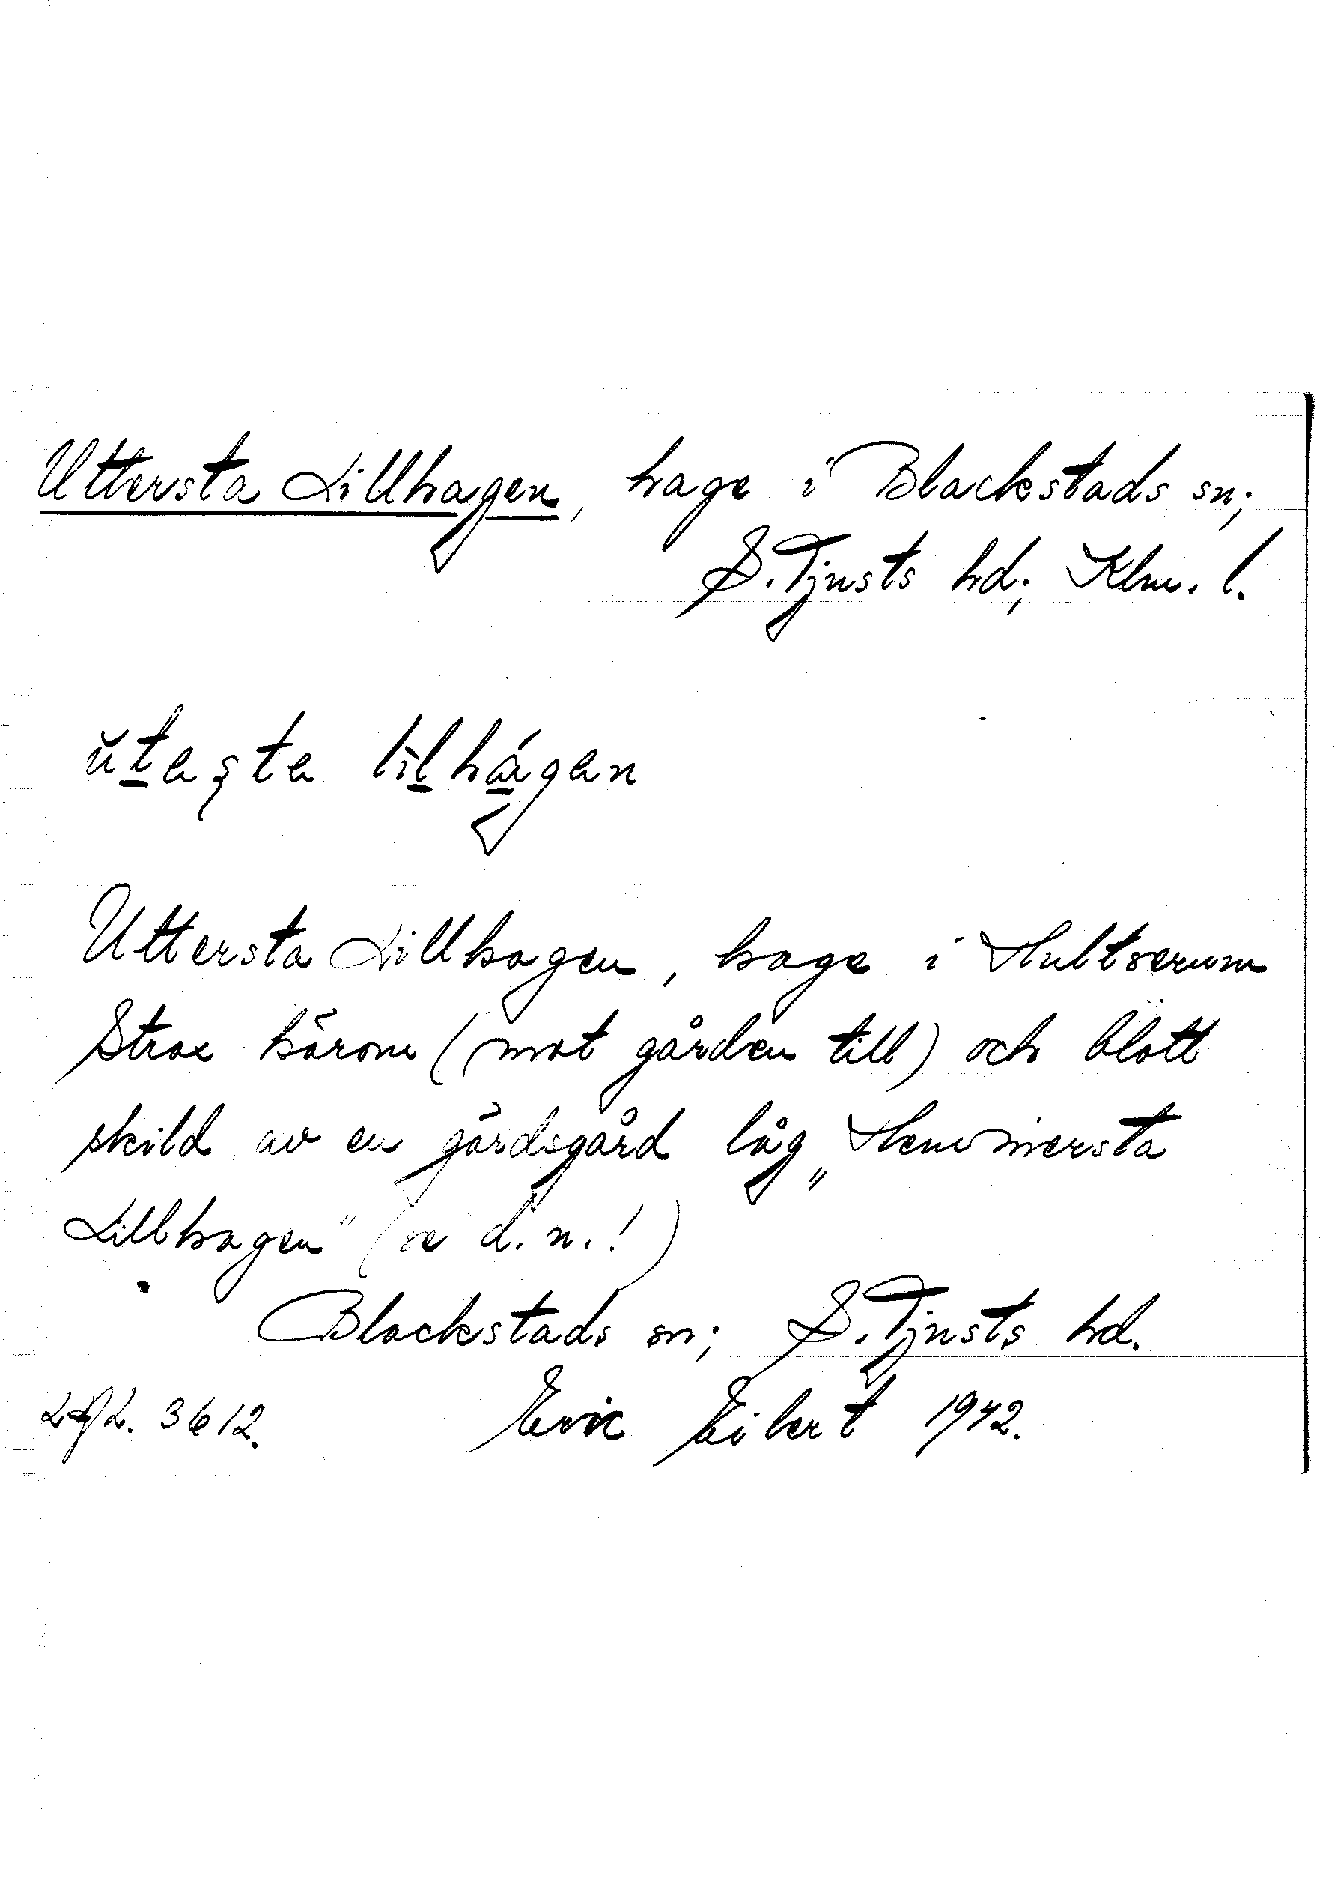 Uttersta Lillhagen, hage i Blackstads sn;
S. Tjusts hd; Klm. l.
Uttersta Lillhagen, hage i Hultserum
Strax härom (mot gården till) och blott
skild av en gärdsgård låg „Hemmersta
Lillhagen" (se d.n.!)
Blackstads sn; S. Tjusts hd.
3612. Eric Eibert 1942.